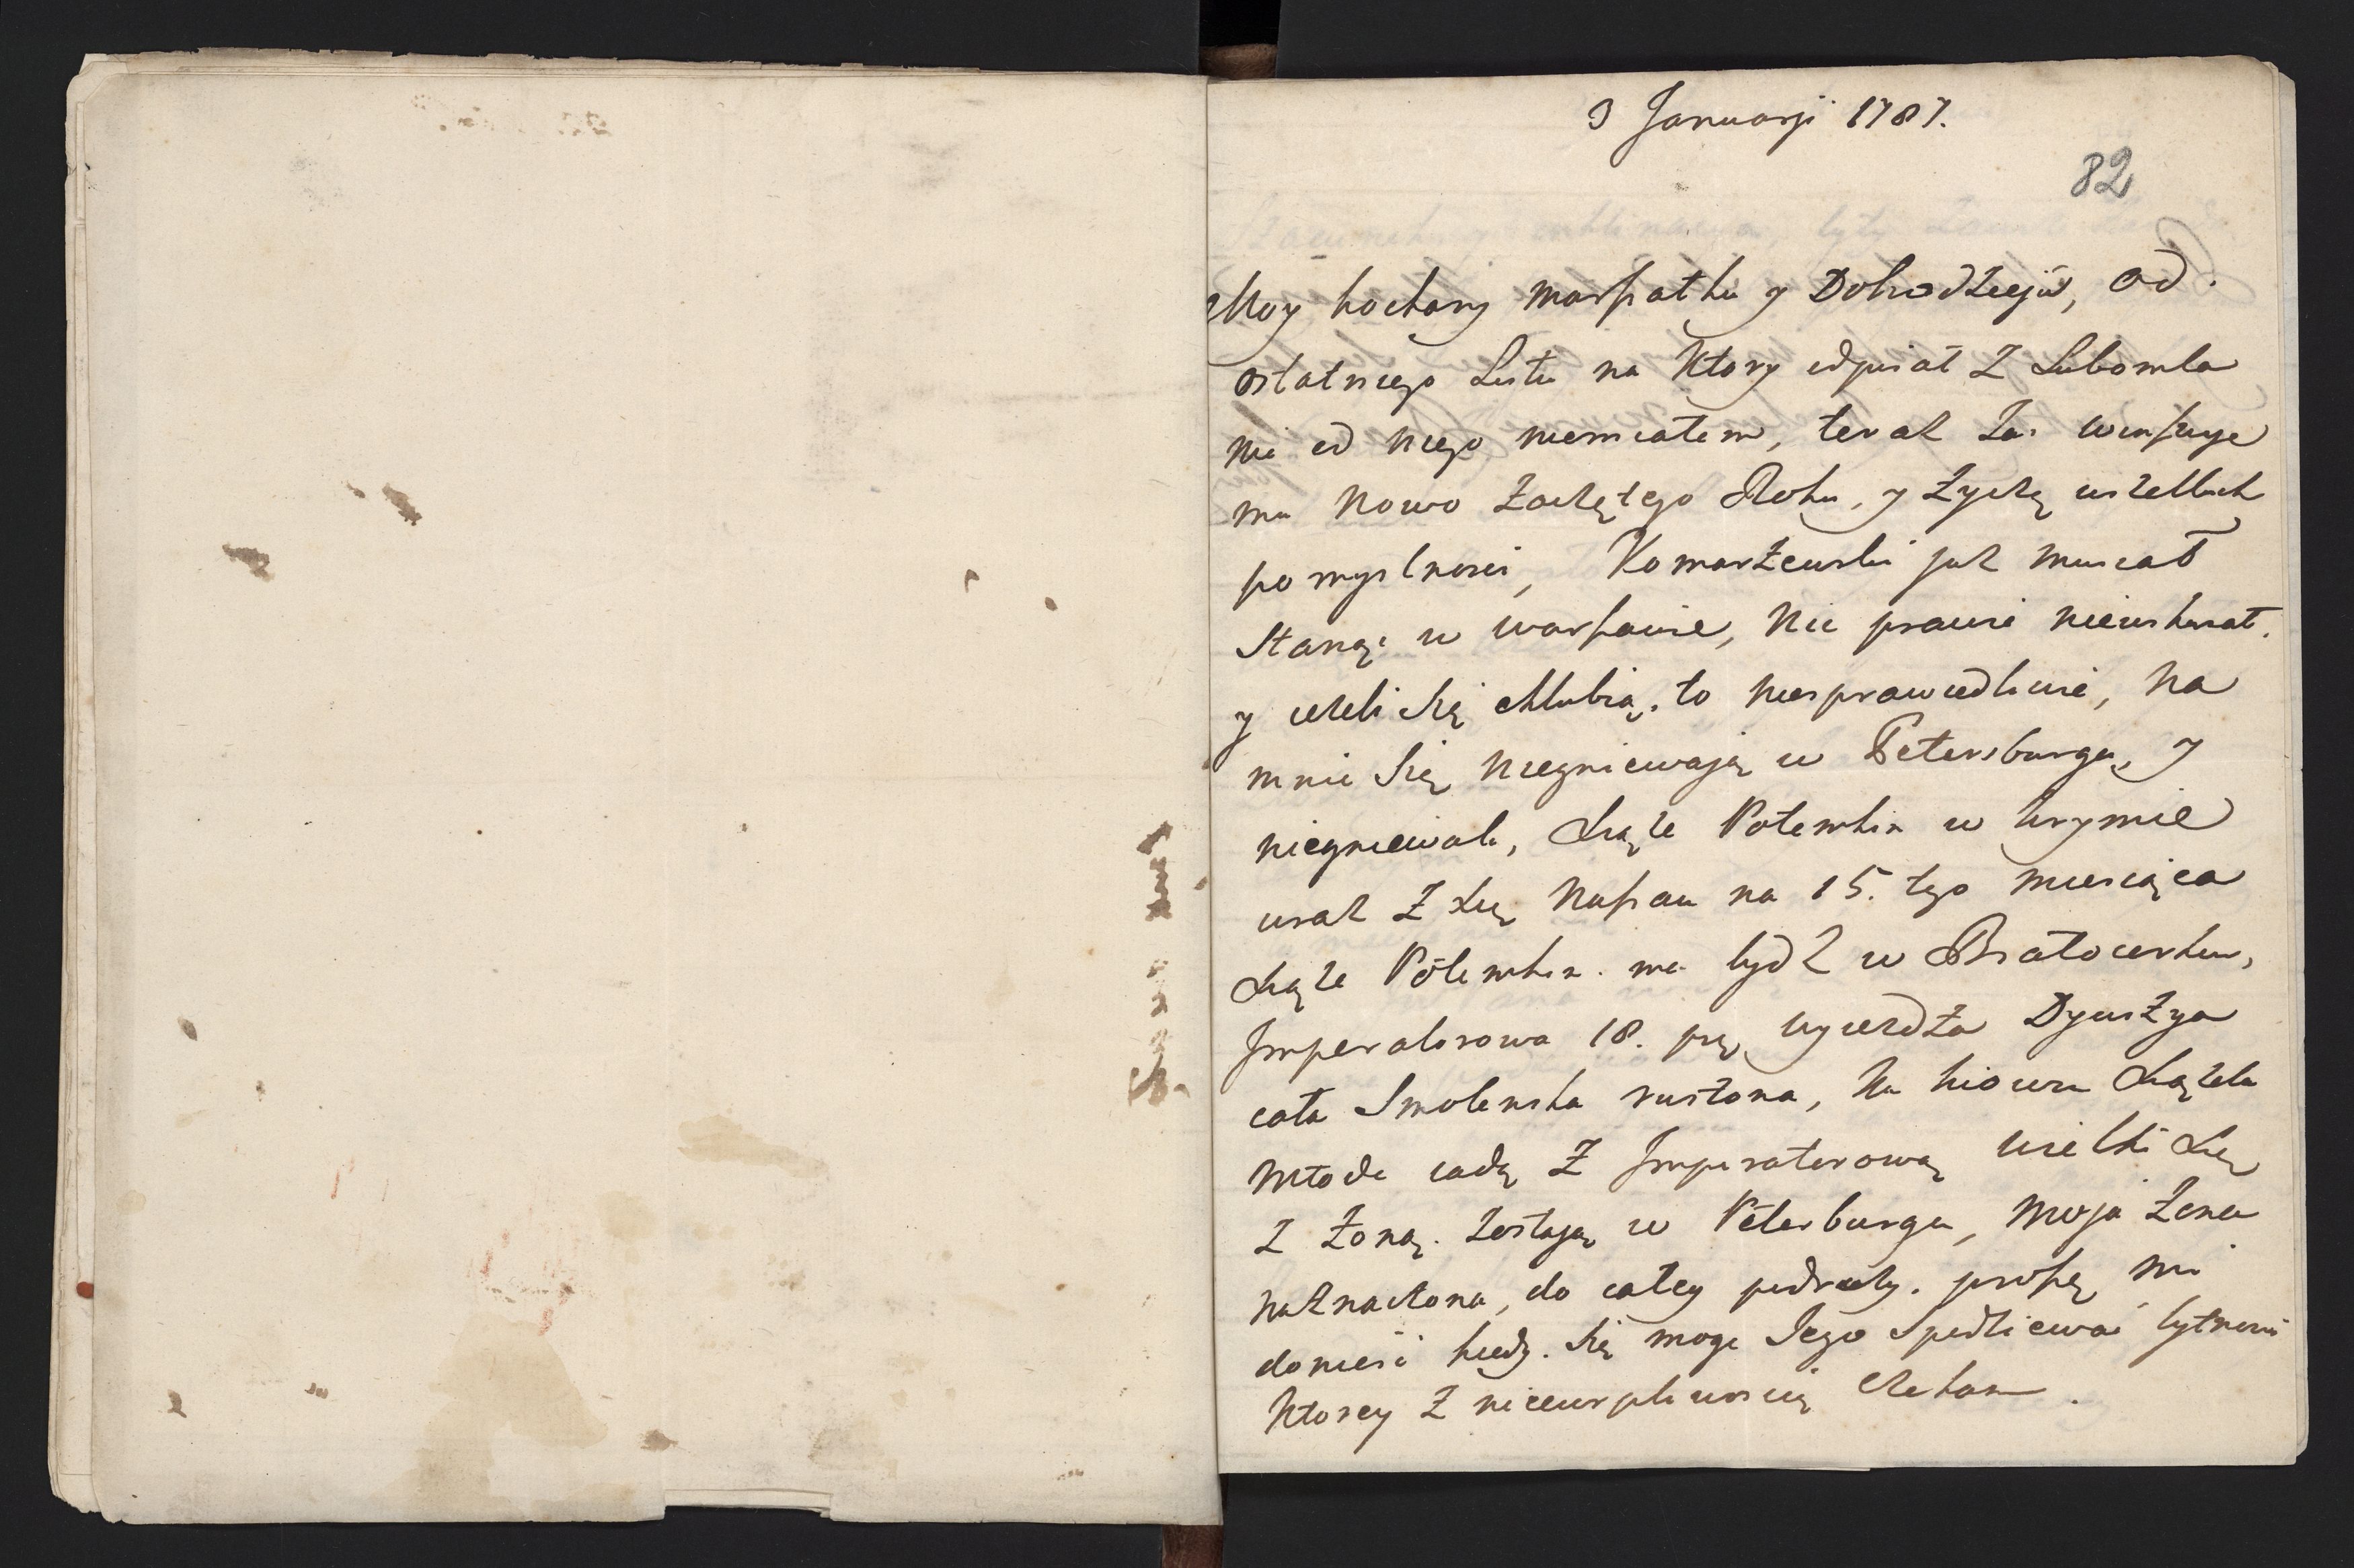 3 Januarji 1787.
82
Moy kochany marszałku y Dobrodzieju, od
ostatniego Listu na Ktory odpisał z Lubomla
nic od niego niemiałem, teraz Zas winszuje
mu Nowo Zaczętego Roku, y Zyczę wszelkich
pomyslnosci, Komarzewski juz musiał
Stanąć w warszawie, Nic prawie niewskurał.
y iezeli się chlubią, to niesprawiedliwie, Na
mnie Się niegniewają w Petersburgu, y
niegniewali, Xiąze Potemkin w krymie
wraz Z Xię Nassau na 15. tego miesiąca
Xiąze Potemkin ma bydz w Białocerkwi,
Imperatorowa 18. wyiezdza Dywizya
cała Smolenska ruszona, Na kiowu Xiązęta
Młode iadą Z Imperatorową wielki Xię
z Zoną Zostają w Petersburgu, Moja Zona
naznaczona, do całey podrozy. proszę mi
doniesć kiedy Się moge Jego Spodziewać bytnosci
Ktorey Z niecierpliwoscią czekam.